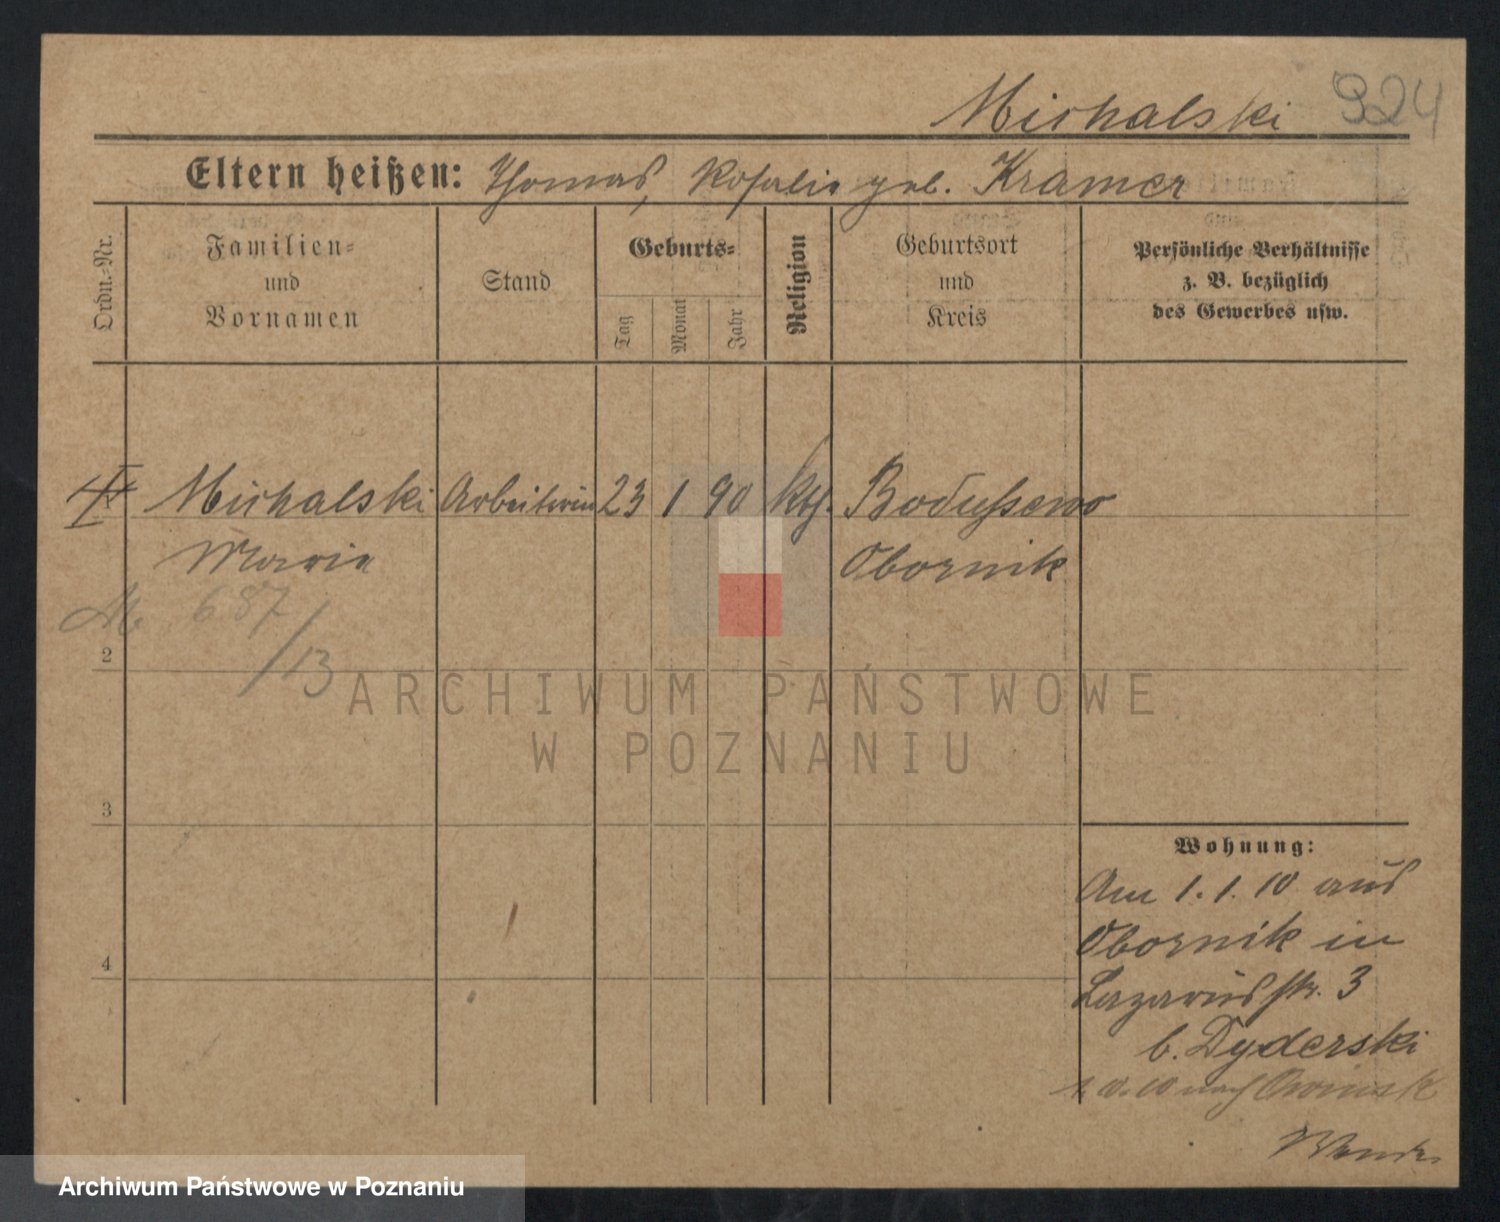 Michalski 924
Eltern heißen: Thomas, Rosalie geb. Kramer
Ordn.-Nr.
Familien-
und
Vornamen
Stand
Geburts-
Tag
Monat
Jahr
Religion
Geburtsort
und
Kreis
Persönliche Verhältnisse
z. B. bezüglich
des Gewerbes usw.
Michalski Arbeiterin 23 1 90 kth. Boduszewo
Maria Obornik
687
/13
2
3
4
Wohnung:
Am 1.1.10 aus
Obornik in
Lazarusstr. 3
b. Dyderski
10 nach
ARCHIWUM PAŃSTWOWE
W POZNANIU
Archiwum Państwowe w Poznaniu